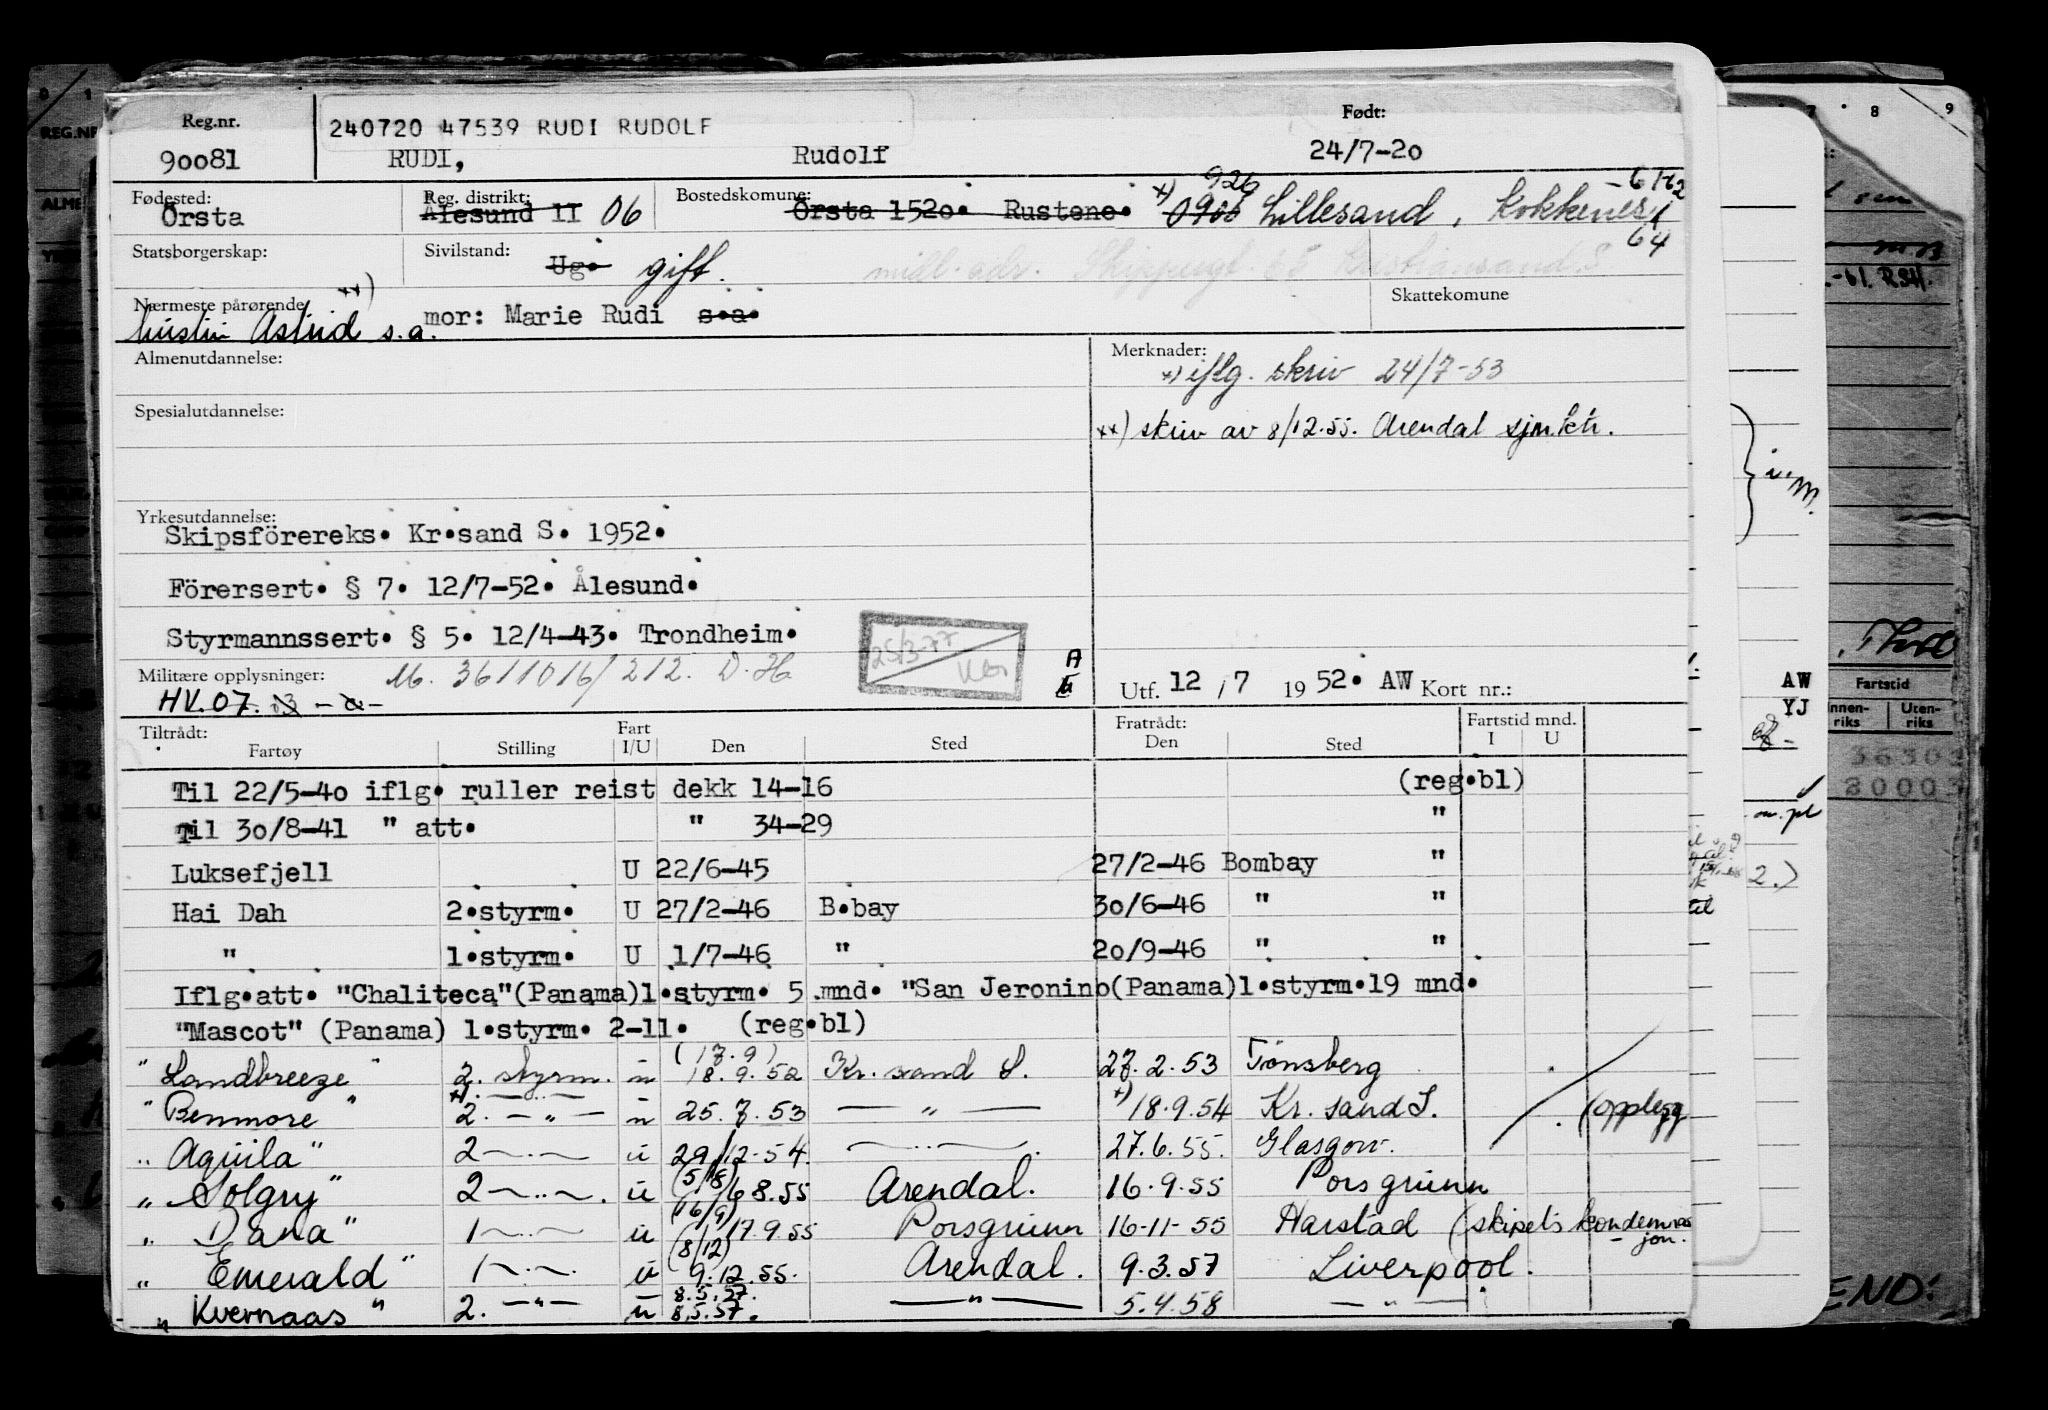 Reg.nr. 240720 47539 RUDI RUDOLF Født:
90081 RUDI, Rudolf 24/7-20
Fødested: Reg. distrikt: Bostedskomune: 926
Örsta Ålesund II 06 Örsta 1520. Rustene. x) 0906 Lillesand, Kokkenes
64
Statsborgerskap: Sivilstand: Ug. gift. midl. adr. Skippergt. 65 Kristiansand S
Nærmeste pårørende xx) mor: Marie Rudi s.a. Skattekomune
hustru Astrid s.a.
Almenutdannelse: Merknader:
x) iflg. skriv 24/7-53
Spesialutdannelse: xx) skriv av 8/12.55. Arendal sjm.ktr.
Yrkesutdannelse:
Skipsförereks. Kr.sand S. 1952.
Förersert. § 7. 12/7-52. Ålesund.
Styrmannssert. § 5. 12/4-43. Trondheim.
25/3-77
Militære opplysninger: M. 3611016/212. D.H. A
HV.07. Utf. 12/7 1952. AW Kort nr.:
Tiltrådt: Fart Fratrådt: Fartstid mnd.
Fartøy Stilling I/U Den Sted Den Sted I U
Til 22/5-40 iflg. ruller reist dekk 14-16 (reg.bl)
Til 30/8-41 " att. " 34-29 "
Luksefjell U 22/6-45 27/2-46 Bombay "
Hai Dah 2.styrm. U 27/2-46 B.bay 30/6-46 " "
" 1.styrm. U 1/7-46 " 20/9-46 " "
Iflg.att. "Chaliteca"(Panama)1.styrm. 5 mnd. "San Jeronino(Panama)1.styrm.19 mnd.
"Mascot" (Panama) 1.styrm. 2-11. (reg.bl)
"Landbreeze" 2. styrm. u (17.9) 18.9.52 Kr. sand S. 27.2.53 Tønsberg
"Benmore" x) 2. — " — u 25.7.53 — " — x) 18.9.54 Kr. sand S. (opplegg
"Aquila" 2 — " — u 29/12-54. — " — 27.6.55. Glasgow.
"Solgry" 2 — " — u (5/8) 6 8.55 Arendal. 16.9.55 Porsgrunn
"Dana" 1 — " — u (16/9) 17.9.55 Porsgrunn 16-11-55 Harstad (skipets kondemnasjon.
"Emerald" 1 — " — u (8/12) 9.12.55. Arendal. 9.3.57 Liverpool.
"Kvernaas" 2. — " — u 8.5.57. 8.5.57. — " — 5.4.58 — " —
REG.NR
7 8 9
-61. RSH.
i.M.
AW
YJ
Fartstid
Innen-riks Uten-riks
36302
20003
2.)
END: